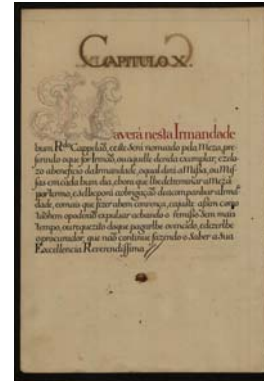 CAPITULO X.
Haverá nesta Irmandade
hum Rdo Cappelaõ, este Será nomeado pela Meza, pre
ferindo o que for Irmaõ, ou aquelle de vida exemplar, e zelo
zo a beneficio da Irmandade, o qual dirá a Missa, ou Mis
sas em cada hum dia, e hora que lhe determinar a Meza
por termo, e se lhe porá a obrigaçaõ de acompanhar a Irman
dade, e o mais que fizer a bem convença, e aquelle assim como
tobem a poderaõ expulsar acbando o remisso Sem mais
tempo, ou requezito do que pagarlhe o vencido, e dizerlhe
o procurador, que naõ continue fazendo o Saber a Sua
Excellencia Reverendissima